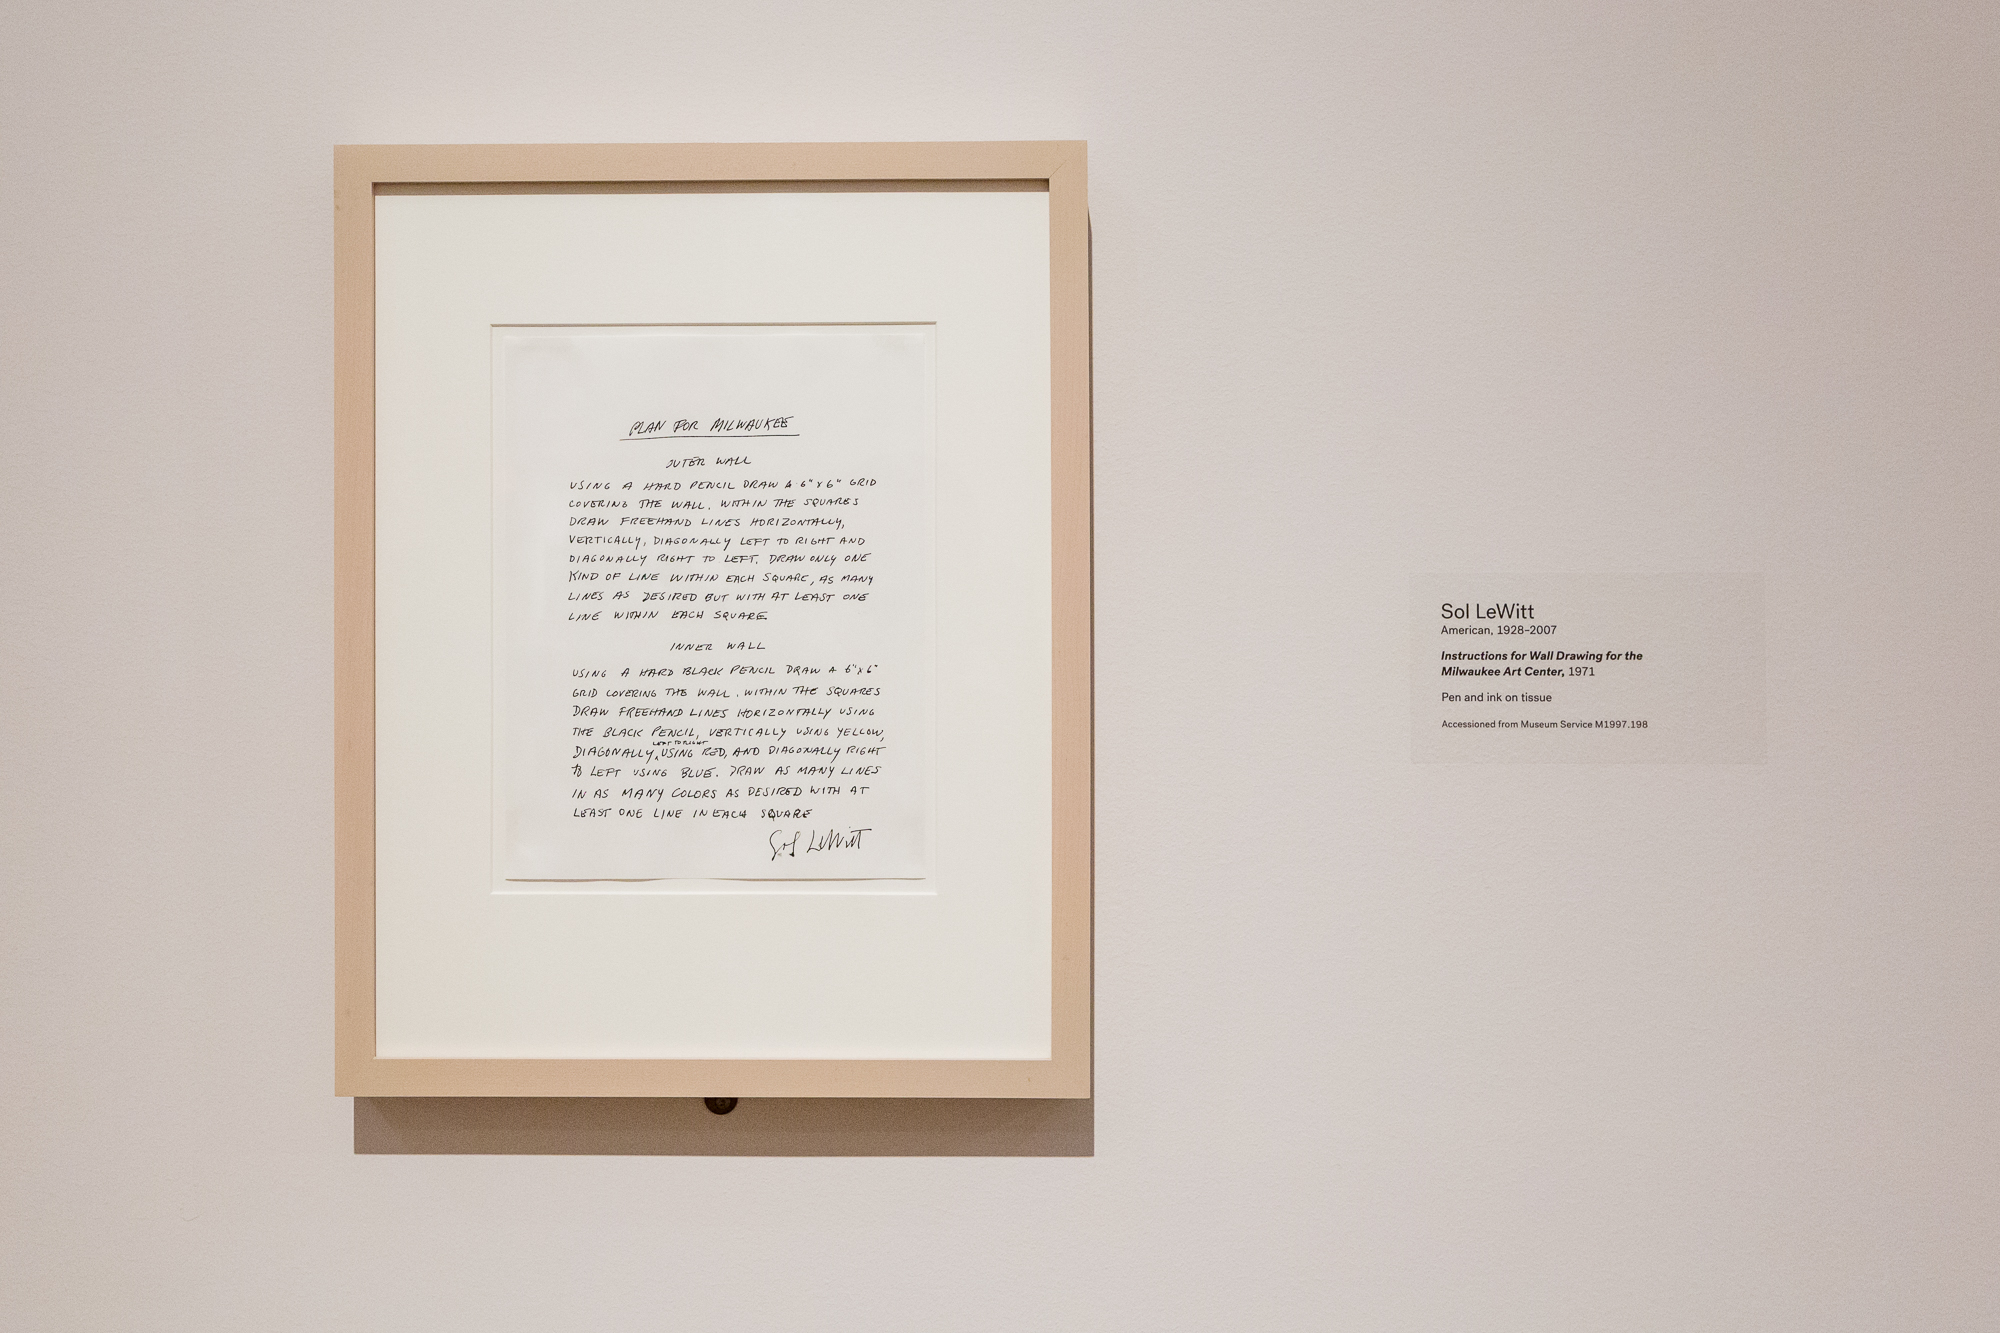 PLAN FOR MILWAUKEE
OUTER WALL
USING A HARD PENCIL DRAW A 6" X 6" GRID
COVERING THE WALL. WITHIN THE SQUARES
DRAW FREEHAND LINES HORIZONTALLY,
VERTICALLY, DIAGONALLY LEFT TO RIGHT AND
DIAGONALLY RIGHT TO LEFT. DRAW ONLY ONE
KIND OF LINE WITHIN EACH SQUARE, AS MANY
LINES AS DESIRED BUT WITH AT LEAST ONE
LINE WITHIN EACH SQUARE.
INNER WALL
USING A HARD BLACK PENCIL DRAW A 6" X 6"
GRID COVERING THE WALL. WITHIN THE SQUARES
DRAW FREEHAND LINES HORIZONTALLY USING
THE BLACK PENCIL, VERTICALLY USING YELLOW,
LEFT TO RIGHT
DIAGONALLY, USING RED, AND DIAGONALLY RIGHT
TO LEFT USING BLUE. DRAW AS MANY LINES
IN AS MANY COLORS AS DESIRED WITH AT
LEAST ONE LINE IN EACH SQUARE
Sol LeWitt
Sol LeWitt
American, 1928–2007
Instructions for Wall Drawing for the
Milwaukee Art Center, 1971
Pen and ink on tissue
Accessioned from Museum Service M1997.198